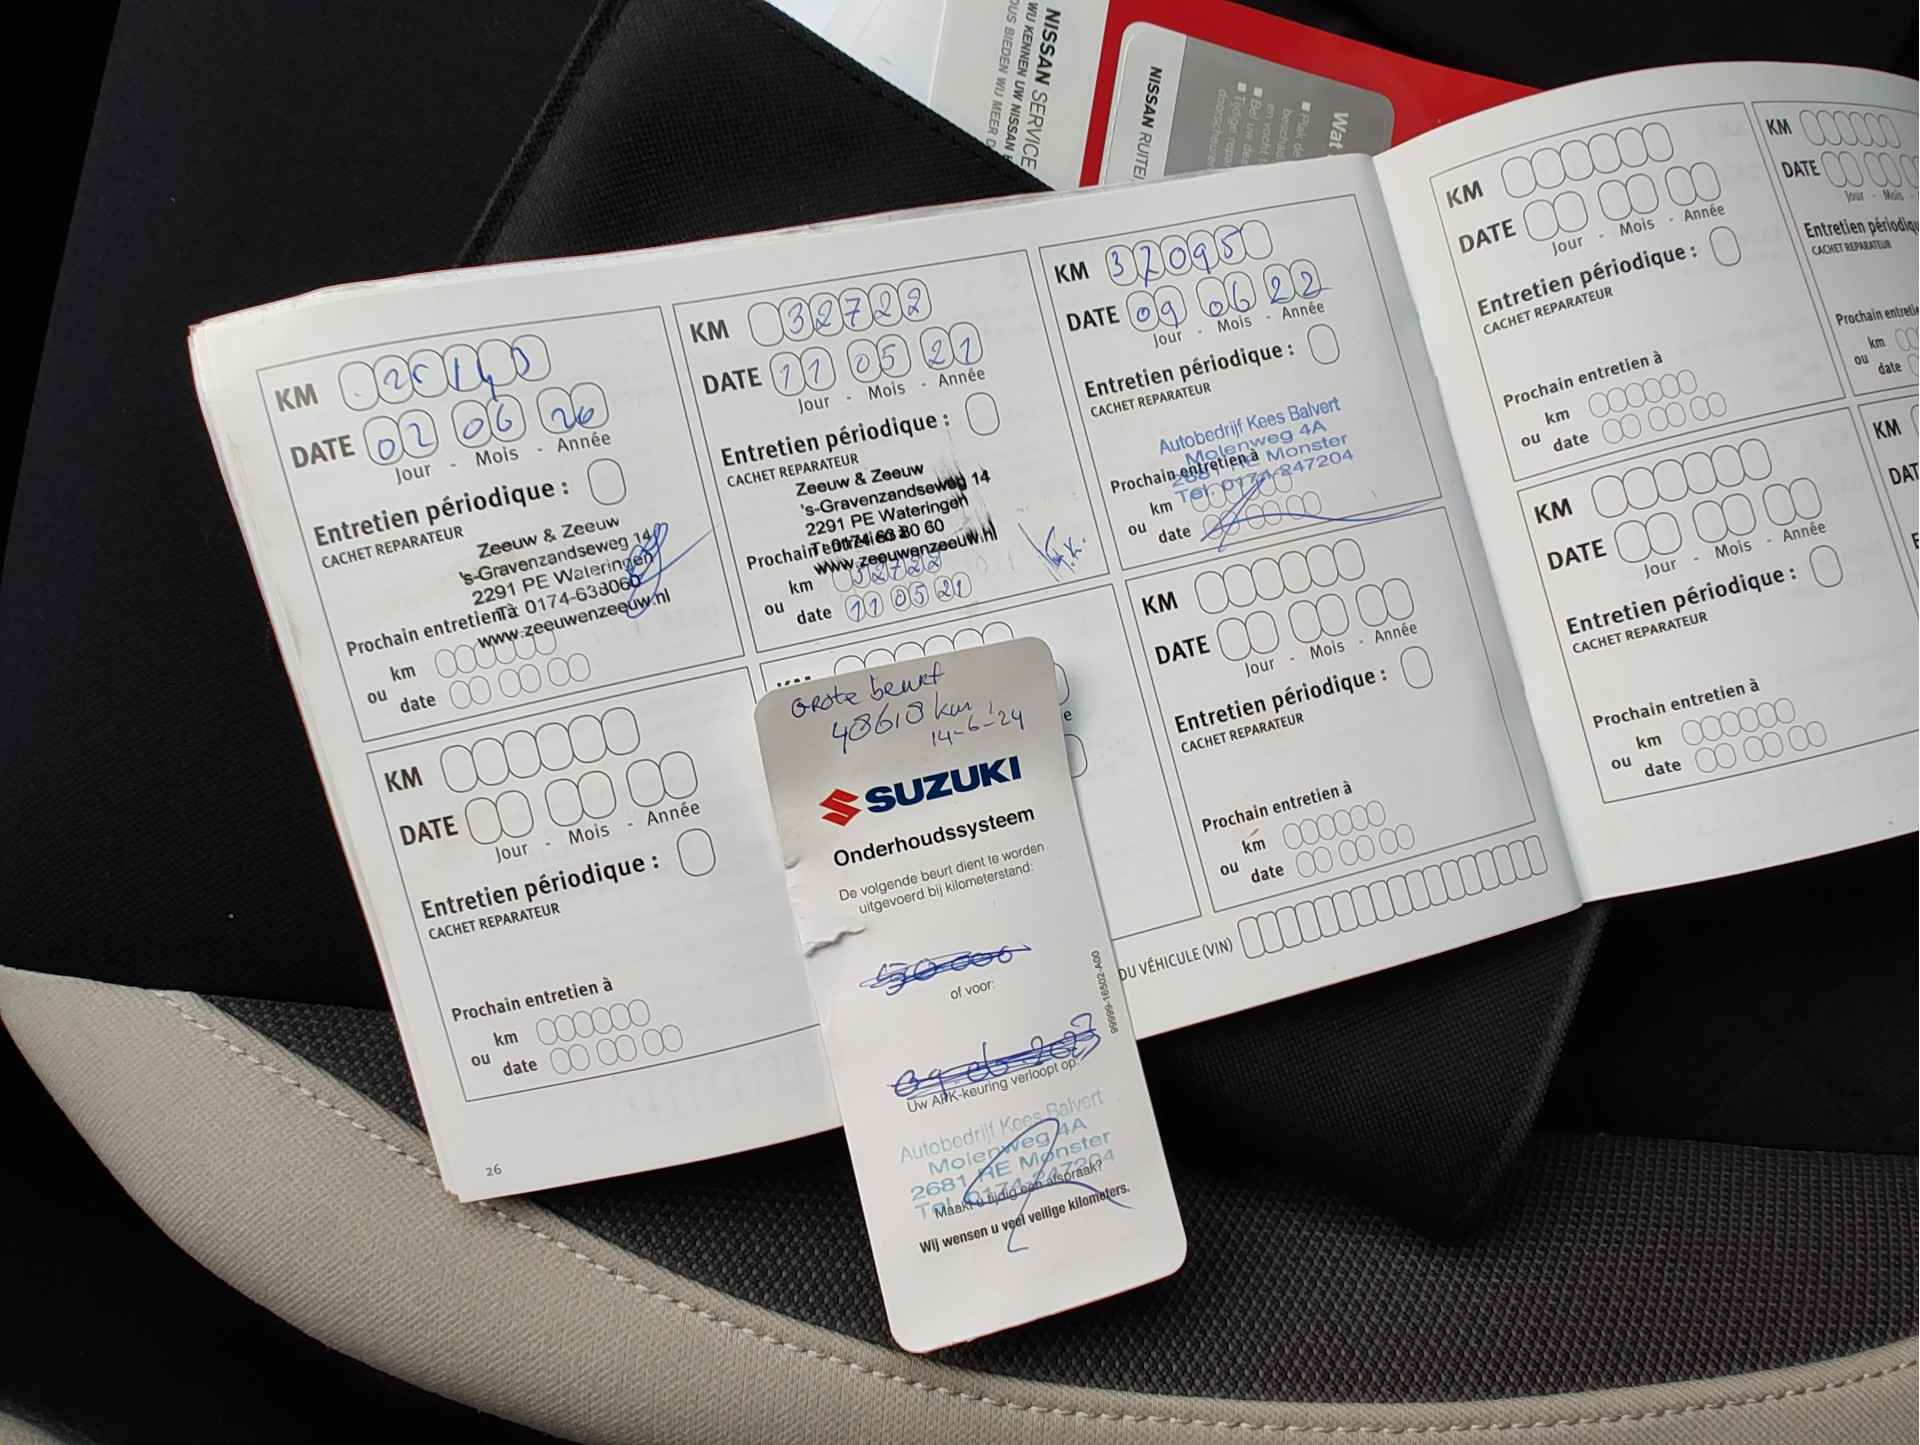 NISSAN SERVICE
WIJ KENNEN UW NISSAN
BIEDEN WIJ MEER
NISSAN
Wat
KM
DATE 02 06 20
Jour - Mois - Année
Entretien périodique :
CACHET REPARATEUR
Zeeuw & Zeeuw
's-Gravenzandseweg 14
2291 PE Wateringen
T. 0174-638060
Prochain entretien à
www.zeeuwenzeeuw.nl
km
ou
date
KM 32722
DATE 11 05 21
Jour - Mois - Année
Entretien périodique :
CACHET REPARATEUR
Zeeuw & Zeeuw
's-Gravenzandseweg 14
2291 PE Wateringen
T. 0174 63 80 60
Prochain entretien à
www.zeeuwenzeeuw.nl
km 32722
ou
date 11 05 21
KM 37095
DATE 09 06 22
Jour - Mois - Année
Entretien périodique :
CACHET REPARATEUR
Autobedrijf Kees Balvert
Molenweg 4A
Prochain entretien à
2681 RE Monster
Tel. 0174-247204
km
ou
date
KM
DATE
Jour - Mois - Année
Entretien périodique :
CACHET REPARATEUR
Prochain entretien à
km
ou
date
KM
DATE
Jour - Mois - Année
Entretien périodique :
CACHET REPARATEUR
Prochain entretien à
km
ou
date
DU VÉHICULE (VIN)
26
KM
DATE
Jour - Mois - Année
Entretien périodique :
CACHET REPARATEUR
Prochain entretien à
km
ou
date
KM
DATE
Jour - Mois
CACHET REPARATEUR
km
ou
date
KM
DATE
Jour - Mois - Année
Entretien périodique :
CACHET REPARATEUR
Prochain entretien à
km
ou
date
KM
Grote beurt
48618 km
14-6-'24
SUZUKI
Onderhoudssysteem
De volgende beurt dient te worden
uitgevoerd bij kilometerstand:
50000
of voor:
09.06.2023
Uw APK-keuring verloopt op:
Autobedrijf Kees Balvert
Molenweg 4A
2681 RE Monster
Tel. 0174-247204
Maakt u tijdig een afspraak?
Wij wensen u veel veilige kilometers.
99999-16502-A00